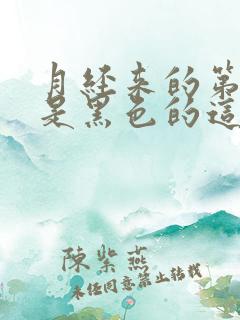 月经来的第
是黑色的這
陳紫燕
未经同意禁止转载